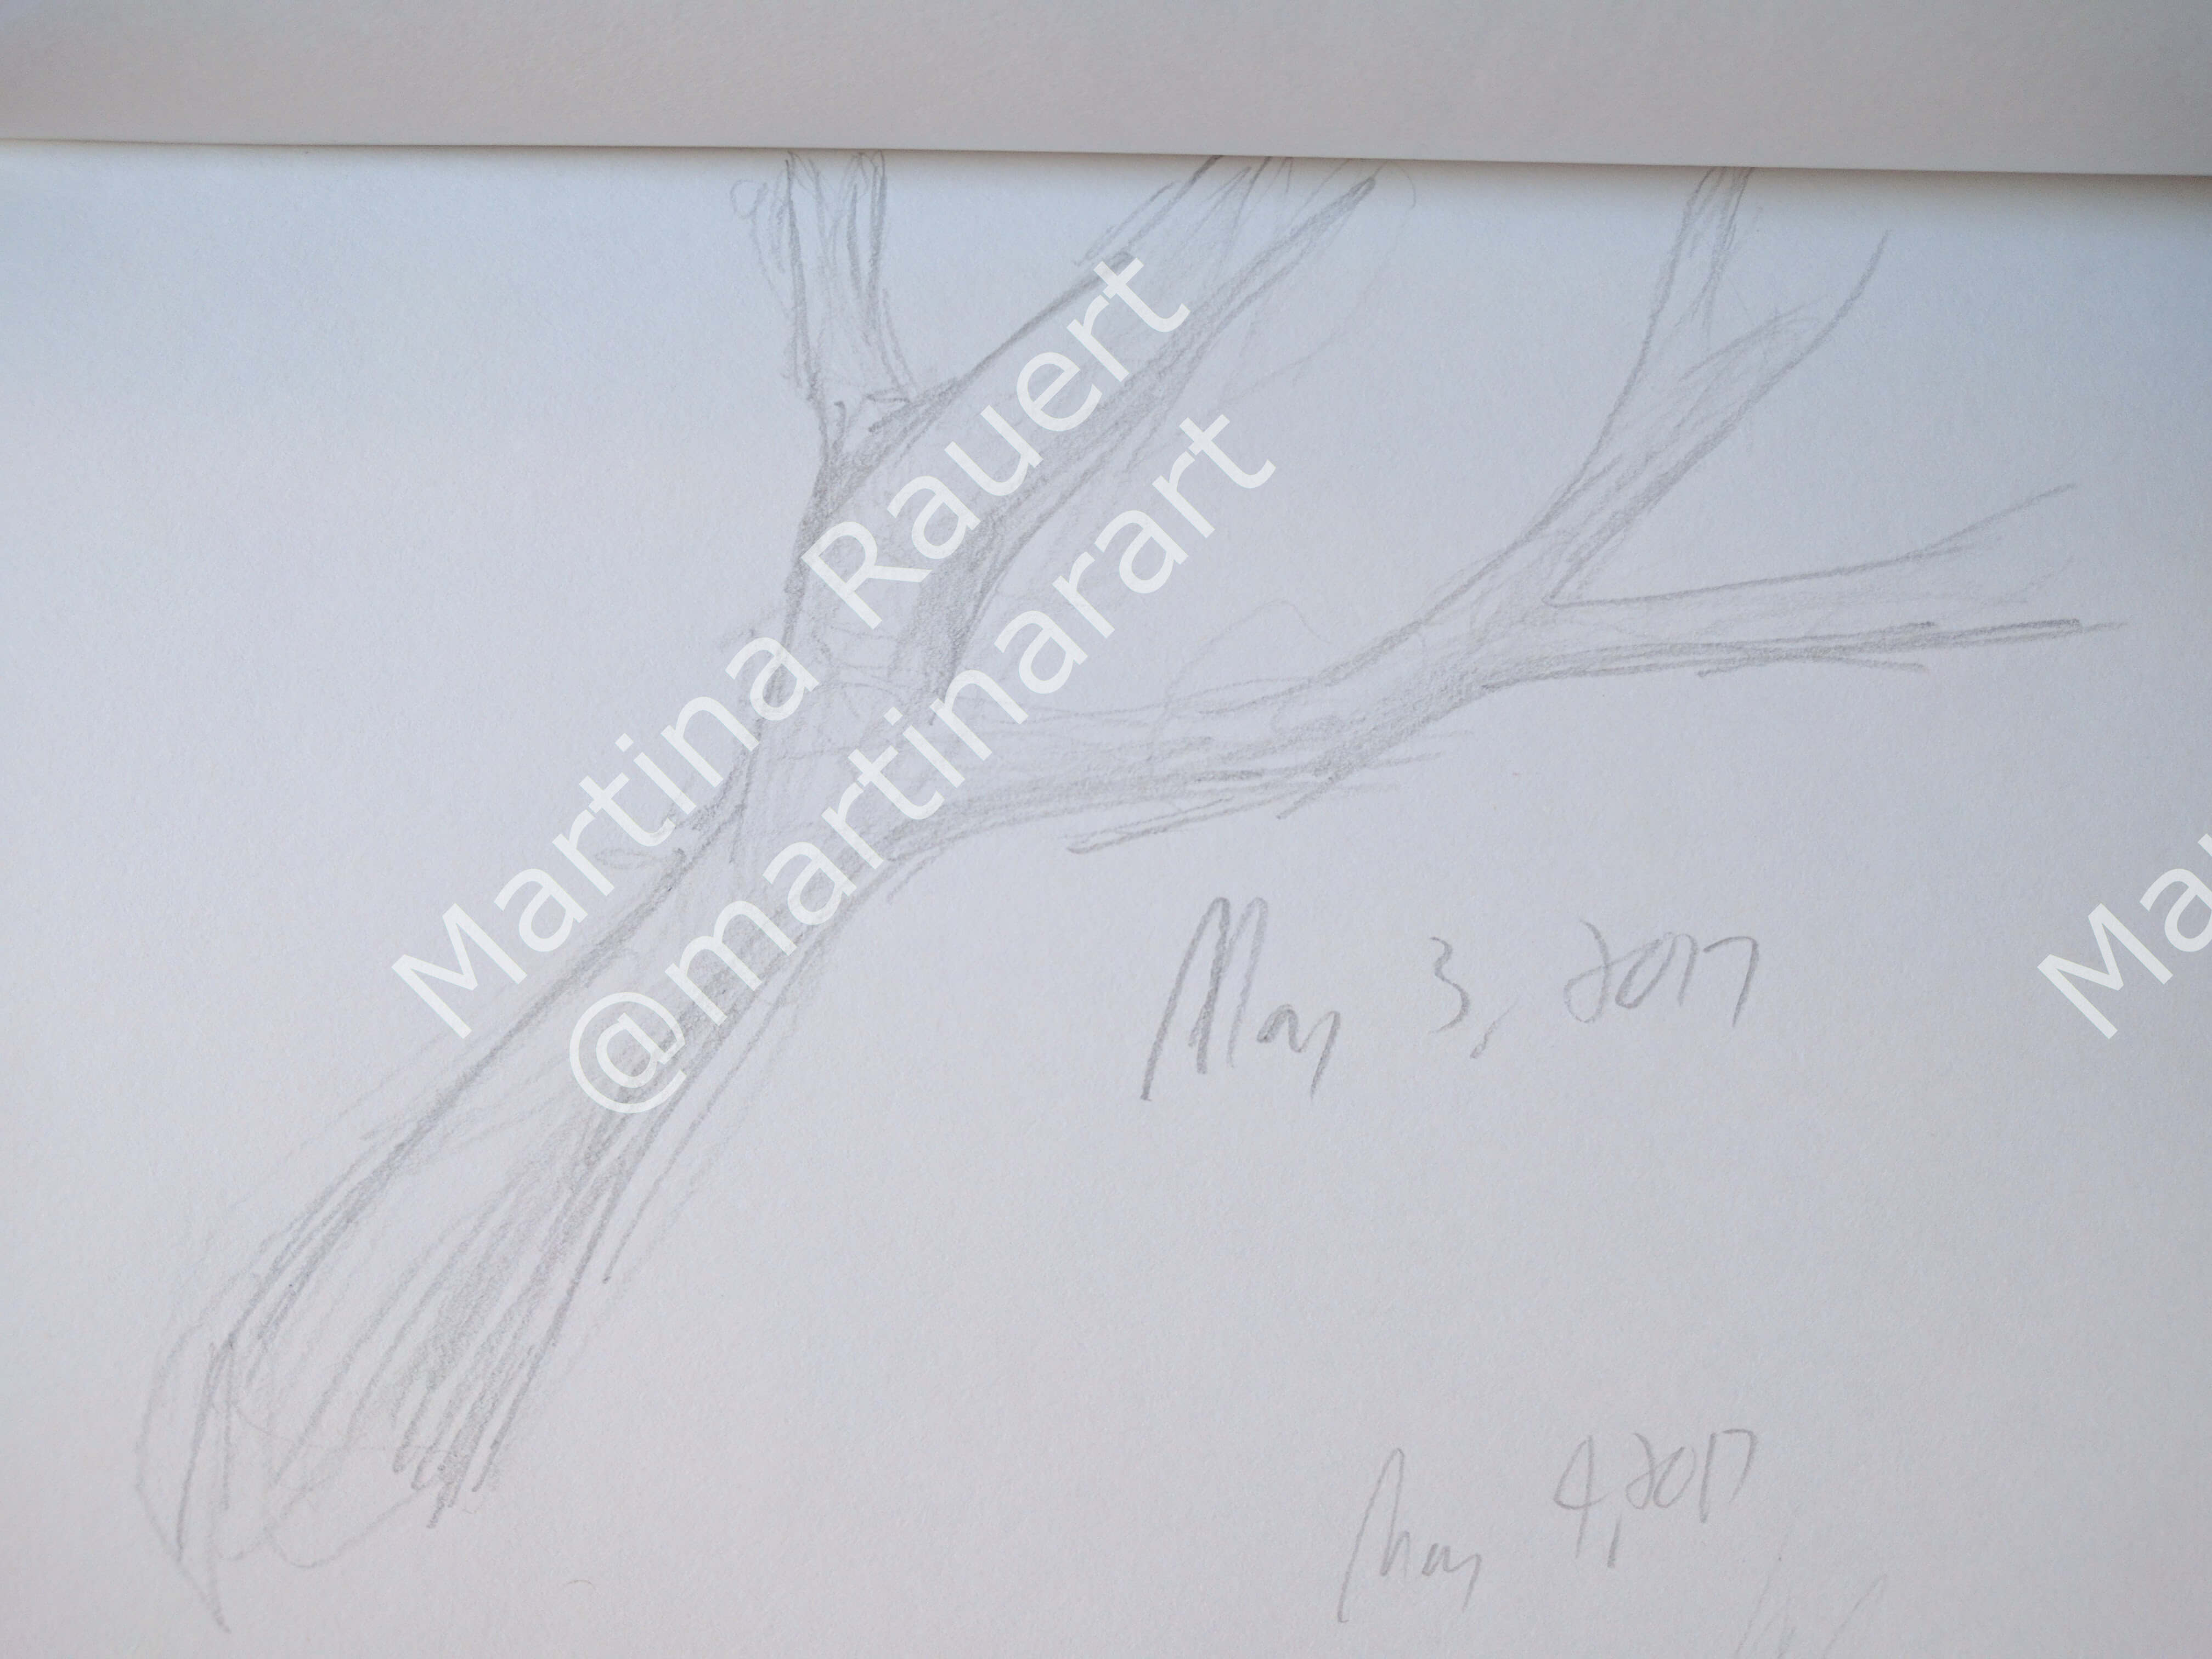 Martina Rauert
@martinarart
Ma
May 3, 2017
May 4, 2017